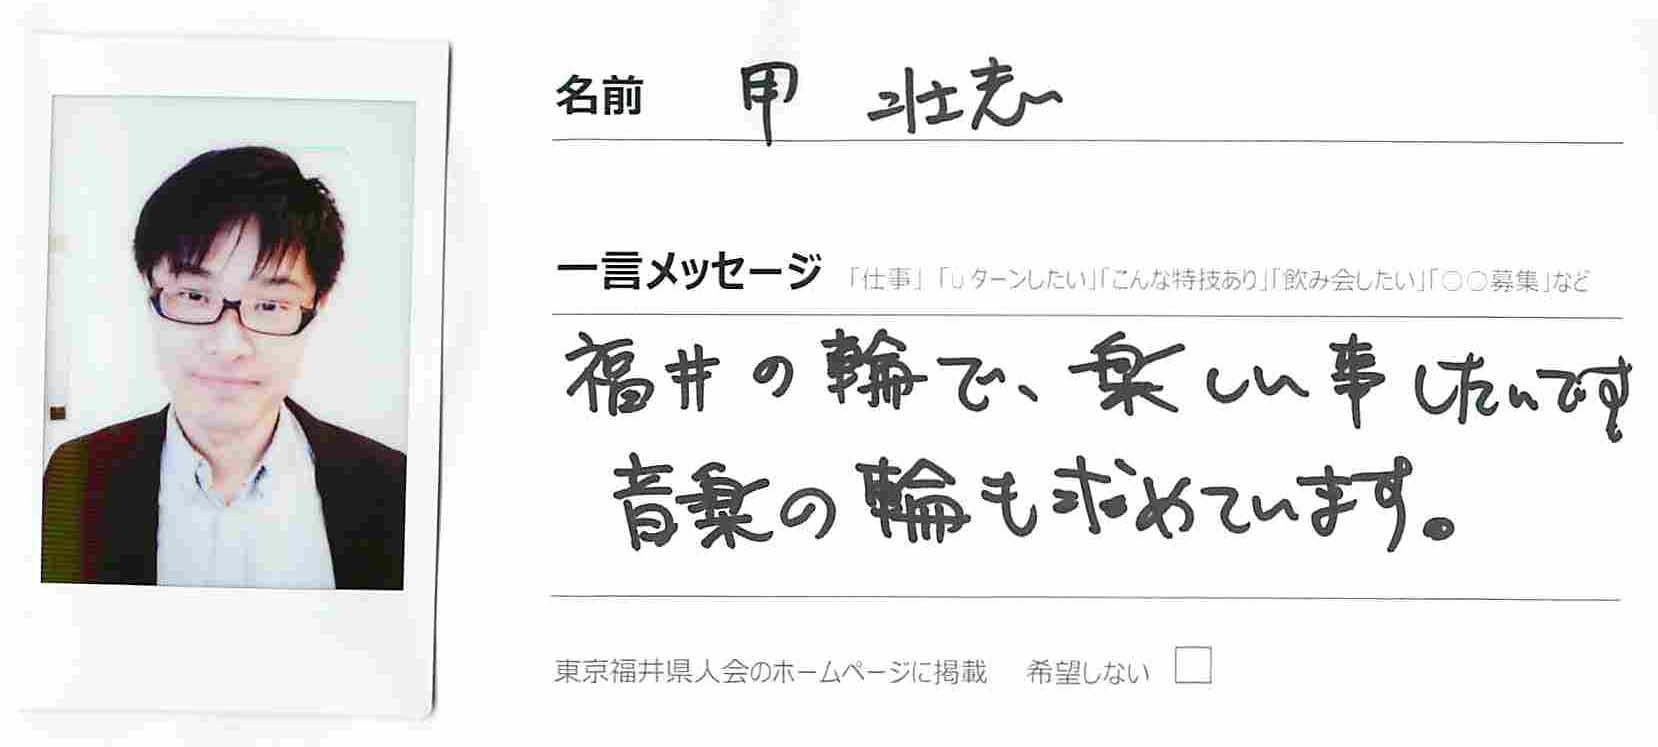 名前 甲 壮志
一言メッセージ 「仕事」「Uターンしたい」「こんな特技あり」「飲み会したい」「○○募集」など
福井の輪で、楽しい事したいです
音楽の輪も求めています。
東京福井県人会のホームページに掲載 希望しない □